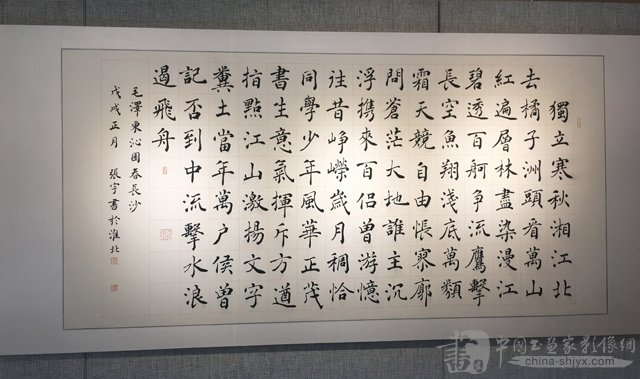 獨立寒秋湘江北
去橘子洲頭看萬山
紅遍層林盡染漫江
碧透百舸争流鷹擊
長空魚翔淺底萬類
霜天競自由悵寥廓
問蒼茫大地誰主沉
浮携來百侶曾游憶
往昔崢嶸歲月稠恰
同學少年風華正茂
書生意氣揮斥方遒
指點江山激揚文字
糞土當年萬户侯曾
記否到中流擊水浪
遏飛舟
毛澤東沁園春長沙
戊戌正月 張宇書於淮北
中國书画家影像網
china-shjyx.com